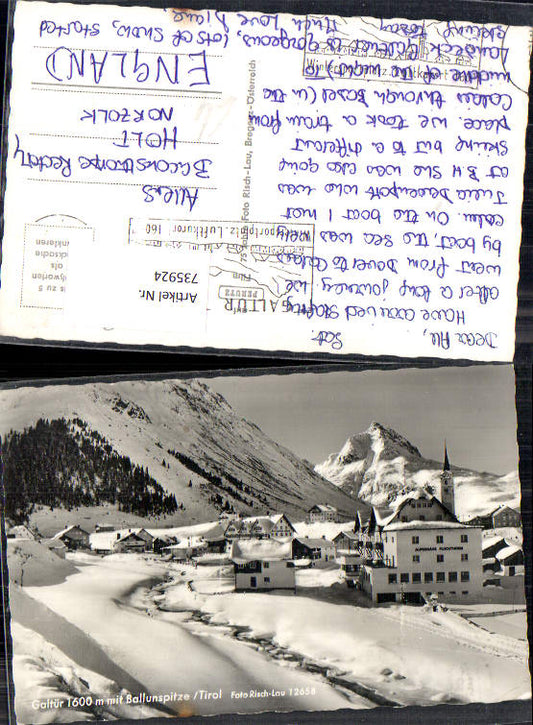 Sat.
Dear All,
Have arrived safely
after a long journey. We
went from Dover to Calais
by boat, the sea was very
calm. On the boat I met
Julia Davenport who was
at B H she was also going
skiing but to a different
place. We took a train from
Calais through Basel (in the
middle of the night) to
Landeck. Galtür is
gorgeous, lots of snow, started
skiing
Much love Diane
Allens
Baconsthorpe Rectory
HOLT
NORFOLK
ENGLAND
GALTÜR
auf
PERUTZ
Film
75 Jahre Foto Risch-Lau, Bregenz-Österreich
Wintersportplatz, Luftkurort 160
Artikel Nr.
735924
is zu 5
dywarten
ols
cksache
inklaren
ALPENHAUS FLUCHTHORN
Galtür 1600 m mit Ballunspitze / Tirol Foto Risch-Lau 12658